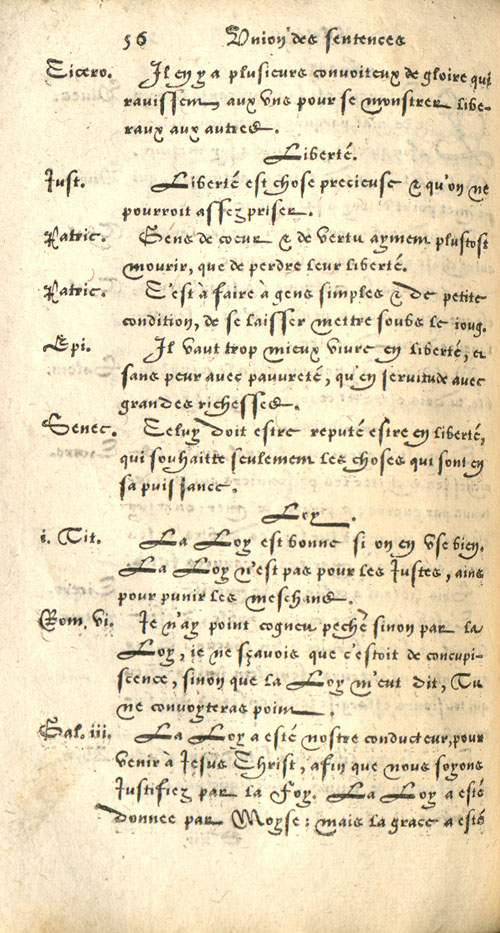 56 Vnion des sentences
Cicero. Il en y a plusieurs convoiteux de gloire qui
ravissent aux vns pour se monstrer libe-
raux aux autres.
Liberté.
Just. Liberté est chose precieuse & qu'on ne
pourroit assez priser.
Patric. Gens de coeur & de vertu ayment plustost
mourir, que de perdre leur liberté.
Patric. C'est à faire à gens simples & de petite
condition, de se laisser mettre soubs le ioug.
Epi. Il vaut trop mieux vivre en liberté, et
sans peur avec pauureté, qu'en servitude avec
grandes richesses.
Senec. Celuy doit estre reputé estre en liberté,
qui souhaitte seulement les choses qui sont en
sa puissance.
Loy.
i. Tit. La Loy est bonne si on en vse bien.
La Loy n'est pas pour les Justes, ains
pour punir les meschans.
Rom. vi. Je n'ay point cogneu peché sinon par la
Loy, ie ne sçavois que c'estoit de concupi-
scence, sinon que la Loy m'eut dit, Tu
ne convoyteras point.
Gal. iii. La Loy a esté nostre conducteur, pour
venir à Jesus Christ, afin que nous soyons
Justifiez par la Foy. La Loy a esté
donnee par Moyse: mais la grace a esté